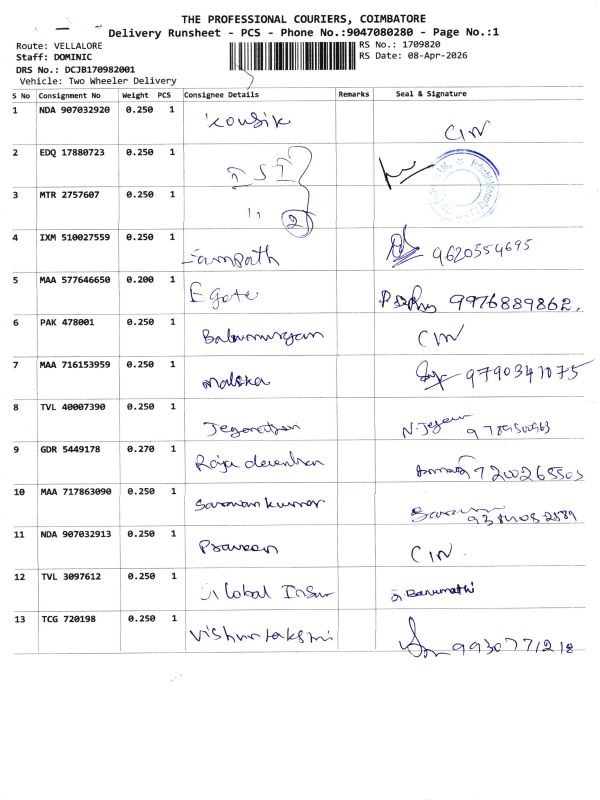 THE PROFESSIONAL COURIERS, COIMBATORE
Delivery Runsheet - PCS - Phone No.:9047080280 - Page No.:1
Route: VELLALORE
RS No.: 1709820
Staff: DOMINIC
RS Date: 08-Apr-2026
DRS No.: DCJB170982001
Vehicle: Two Wheeler Delivery
S No Consignment No Weight PCS Consignee Details Remarks Seal & Signature
1 NDA 907032920 0.250 1 Kousik CIN
2 EDQ 17880723 0.250 1 ISI
3 MTR 2757607 0.250 1 " 2
4 IXM 510027559 0.250 1 Sampath 9620554695
5 MAA 577646650 0.200 1 Egate 9976889862.
6 PAK 478001 0.250 1 Balamurugan CIN
7 MAA 716153959 0.250 1 Malika 9790341075
8 TVL 40007390 0.250 1 Jeganathan N. Jegan
9 GDR 5449178 0.270 1 Raja 7200265505
10 MAA 717863090 0.250 1 Saravan kumar
11 NDA 907032913 0.250 1 Praveen CIN.
12 TVL 3097612 0.250 1 Global Insur
13 TCG 720198 0.250 1 Vishnu Lakshmi